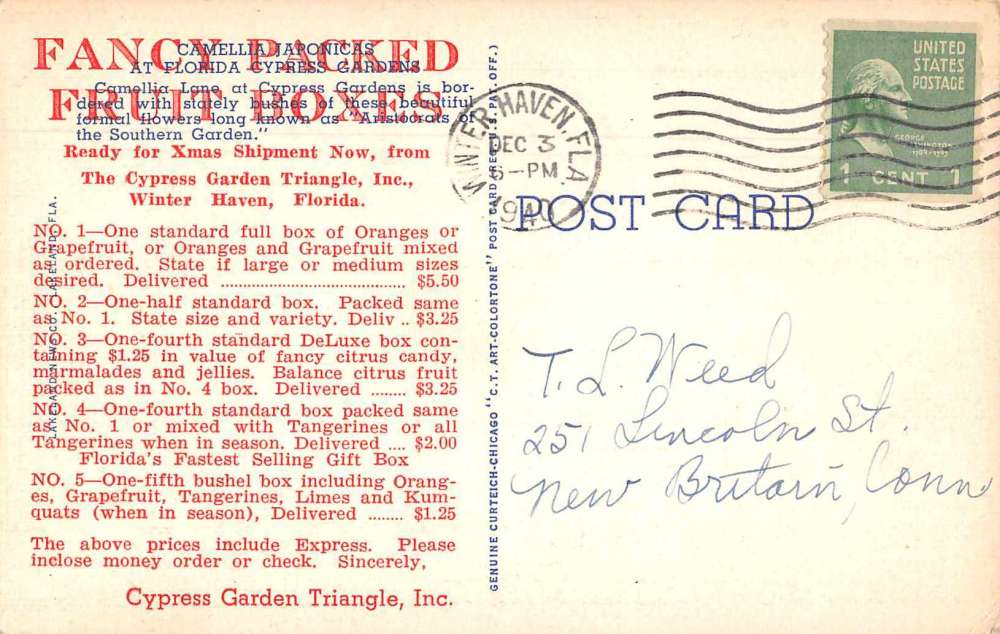 FANCY PACKED
FRUIT BOXES
CAMELLIA JAPONICAS
AT FLORIDA CYPRESS GARDENS
Camellia Lane at Cypress Gardens is bor-
dered with stately bushes of these beautiful
formal flowers long known as "Aristocrats of
the Southern Garden."
Ready for Xmas Shipment Now, from
The Cypress Garden Triangle, Inc.,
Winter Haven, Florida.
NO. 1—One standard full box of Oranges or
Grapefruit, or Oranges and Grapefruit mixed
as ordered. State if large or medium sizes
desired. Delivered ........................................ $5.50
NO. 2—One-half standard box. Packed same
as No. 1. State size and variety. Deliv .. $3.25
NO. 3—One-fourth standard DeLuxe box con-
taining $1.25 in value of fancy citrus candy,
marmalades and jellies. Balance citrus fruit
packed as in No. 4 box. Delivered ........ $3.25
NO. 4—One-fourth standard box packed same
as No. 1 or mixed with Tangerines or all
Tangerines when in season. Delivered .... $2.00
Florida's Fastest Selling Gift Box
NO. 5—One-fifth bushel box including Orang-
es, Grapefruit, Tangerines, Limes and Kum-
quats (when in season), Delivered ........ $1.25
The above prices include Express. Please
inclose money order or check. Sincerely,
Cypress Garden Triangle, Inc.
LAKELAND NEWS CO., LAKELAND, FLA.
GENUINE CURTEICH-CHICAGO "C. T. ART-COLORTONE" POST CARD (REG. U. S. PAT. OFF.)
WINTER HAVEN, FLA.
DEC 3
6-PM
1940
UNITED
STATES
POSTAGE
GEORGE
WASHINGTON
1 CENT 1
POST CARD
T. L. Weed
251 Lincoln St.
New Britain, Conn